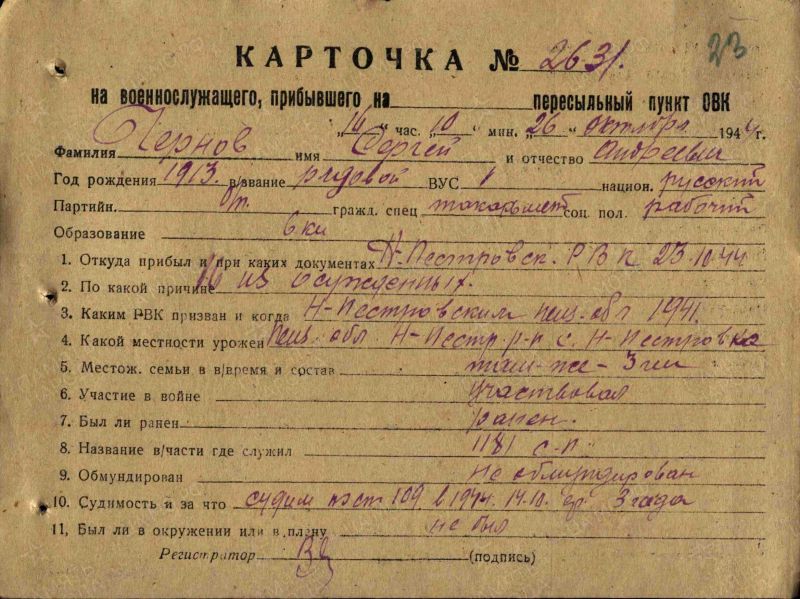 23
КАРТОЧКА № 2631.
на военнослужащего, прибывшего на пересыльный пункт ОВК
„16“ час. „10“ мин. „26“ октября 1944г.
Фамилия Чернов имя Сергей и отчество Андреевич
Год рождения 1913. в/звание рядовой ВУС 1 национ. русский
Партийн. б/п. гражд. спец соц. пол. рабочий
Образование 6 кл
1. Откуда прибыл и при каких документах Н-Пестровск. РВК 23.10.44
2. По какой причине из осужденных.
3. Каким РВК призван и когда Н-Пестровским пенз. обл 1941.
4. Какой местности урожен Пенз. обл. Н-Пестр. р-н с. Н-Пестровка
5. Местож. семьи в в/время и состав там-же - 3 чел
6. Участие в войне участвовал
7. Был ли ранен ранен.
8. Название в/части где служил 1181 с-п.
9. Обмундирован не обмундирован
10. Судимость и за что судим по ст 109 в 1944. 14.10. 3 года
11, Был ли в окружении или в плену не был
Регистратор (подпись)